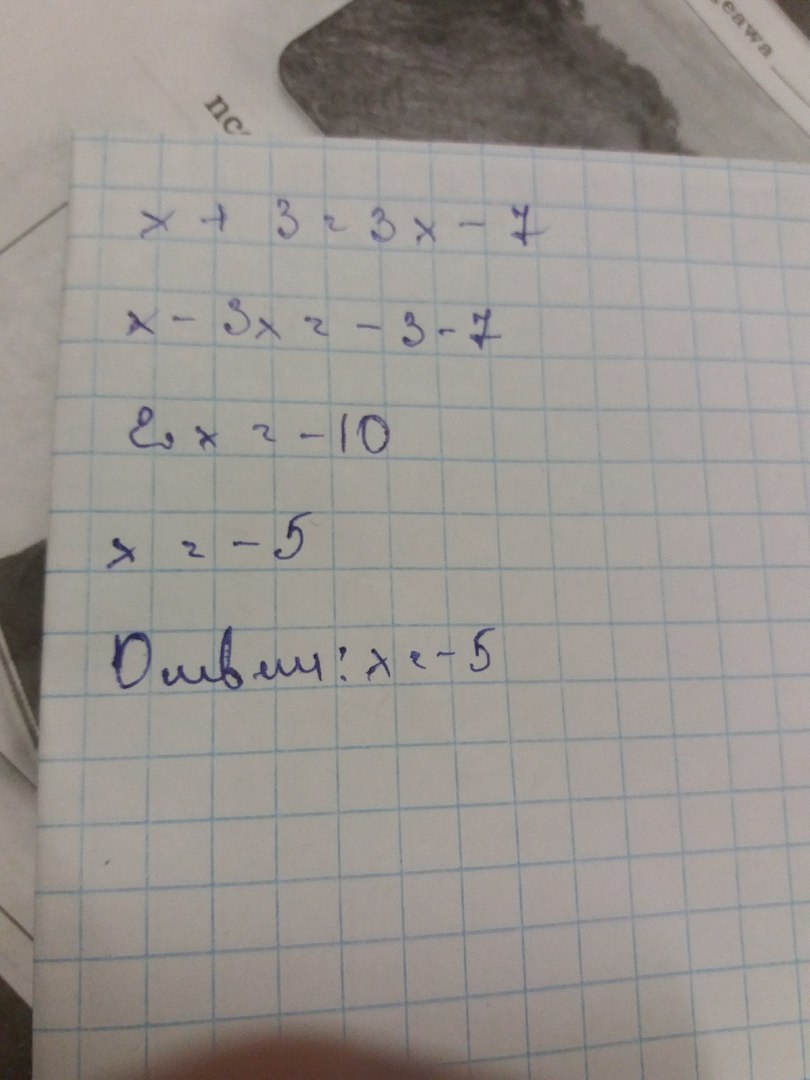 x + 3 = 3x - 7
x - 3x = - 3 - 7
2x = -10
x = -5
Ответ: x = -5